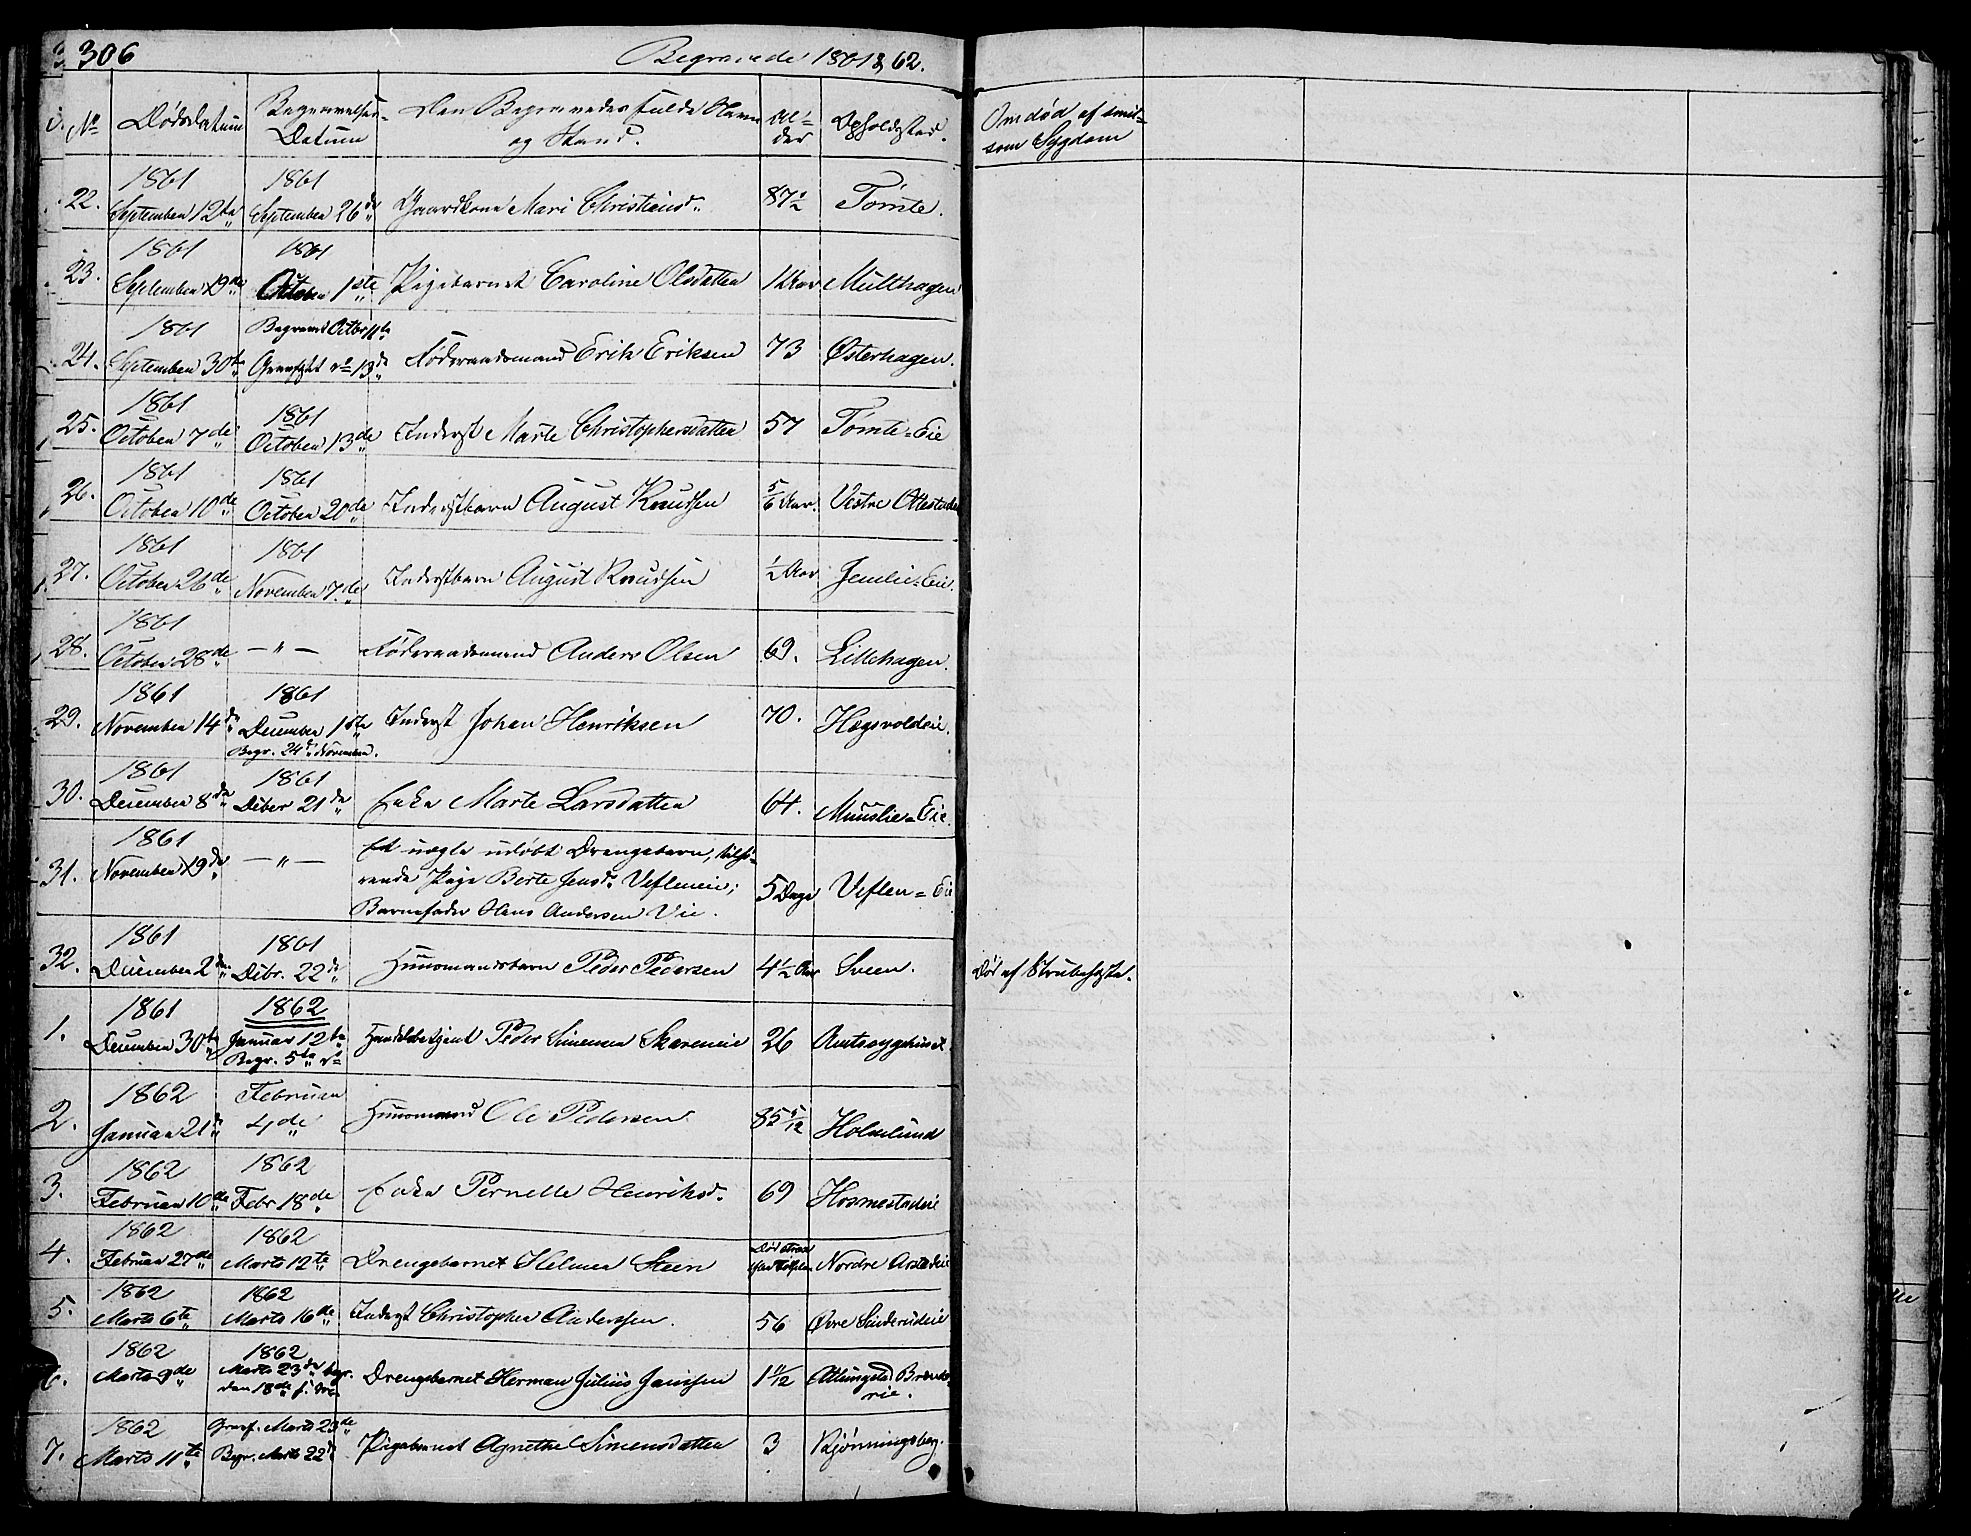 306 Begravede 1861 & 62.
No Dødsdatum Begravelses-Datum Den Begravedes fulde Navn og Stand. Al-der Opholdssted. Om død af smit-som Sygdom
22. 1861 September 12te 1861 September 26de Gaardkone Mari Christiansd. 87½ Tømte.
23. 1861 September 19de 1861 October 1ste Pigebarnet Caroline Olsdatter 1 Aar Multhagen
24. 1861 September 30te Begravet Octbr 11te Grav 13de Føderaadsmand Erik Eriksen 73 Østerhagen.
25. 1861 October 7de 1861 October 13de Inderst Marte Christophersdatter 57 Tømte-Eie
26. 1861 October 10de 1861 October 20de Inderstbarn August Knudsen 5/6 Aar. Vestre
27. 1861 October 26de 1861 November 7de Inderstbarn August Knudsen ½ Aar Jemlie-Eie.
28. 1861 October 28de — " — Føderaadsmand Anders Olsen 69. Lillehagen.
29. 1861 November 14de 1861 December 1ste Begr. 24de November. Inderst Johan Henriksen 70. Hægsvoldeie.
30. 1861 December 8de 1861 Dcbr 21de Enke Marte Larsdatter 64. Muuslie-Eie.
31. 1861 November 19de — " — Et uægte udøbt Drengebarn, tilhø-
rende Pige Berte Jensd. Vefleneie;
Barnefader Hans Andersen Vie. 5 Dage Veflen-Eie
32. 1861 December 2den 1861 Dcbr. 22de Huusmandsbarn Peder Pedersen 4½ Aar Sveen. Død af Strubehoste.
1. 1861 December 30te 1862 Januar 12te Begr. 5te Handelsbetjent Peder Simensen Skareneie 26 Amtssygehuset
2. 1862 Januar 21de Februar 4de Huusmand Ole Pedersen 85 5/12 Holselund
3. 1862 Februar 10de 1862 Febr 18de Enke Pernelle Henriksd. 69
4. 1862 Februar 27de 1862 Marts 12te Drengebarnet Helmer Steen Død strax efter Nordre
5. 1862 Marts 6te 1862 Marts 16de Inderst Christopher Anderssen. 56 Øvre Sinderudeie
6. 1862 Marts 9de 1862 Marts 23de begr. den 18de Drengebarnet Herman Julius Jenssen 1 11/12
7. 1862 Marts 11te Marts 23de Begr. Marts 22de Pigebarnet Agnethe Simensdatter 3 Kjønningsberg.